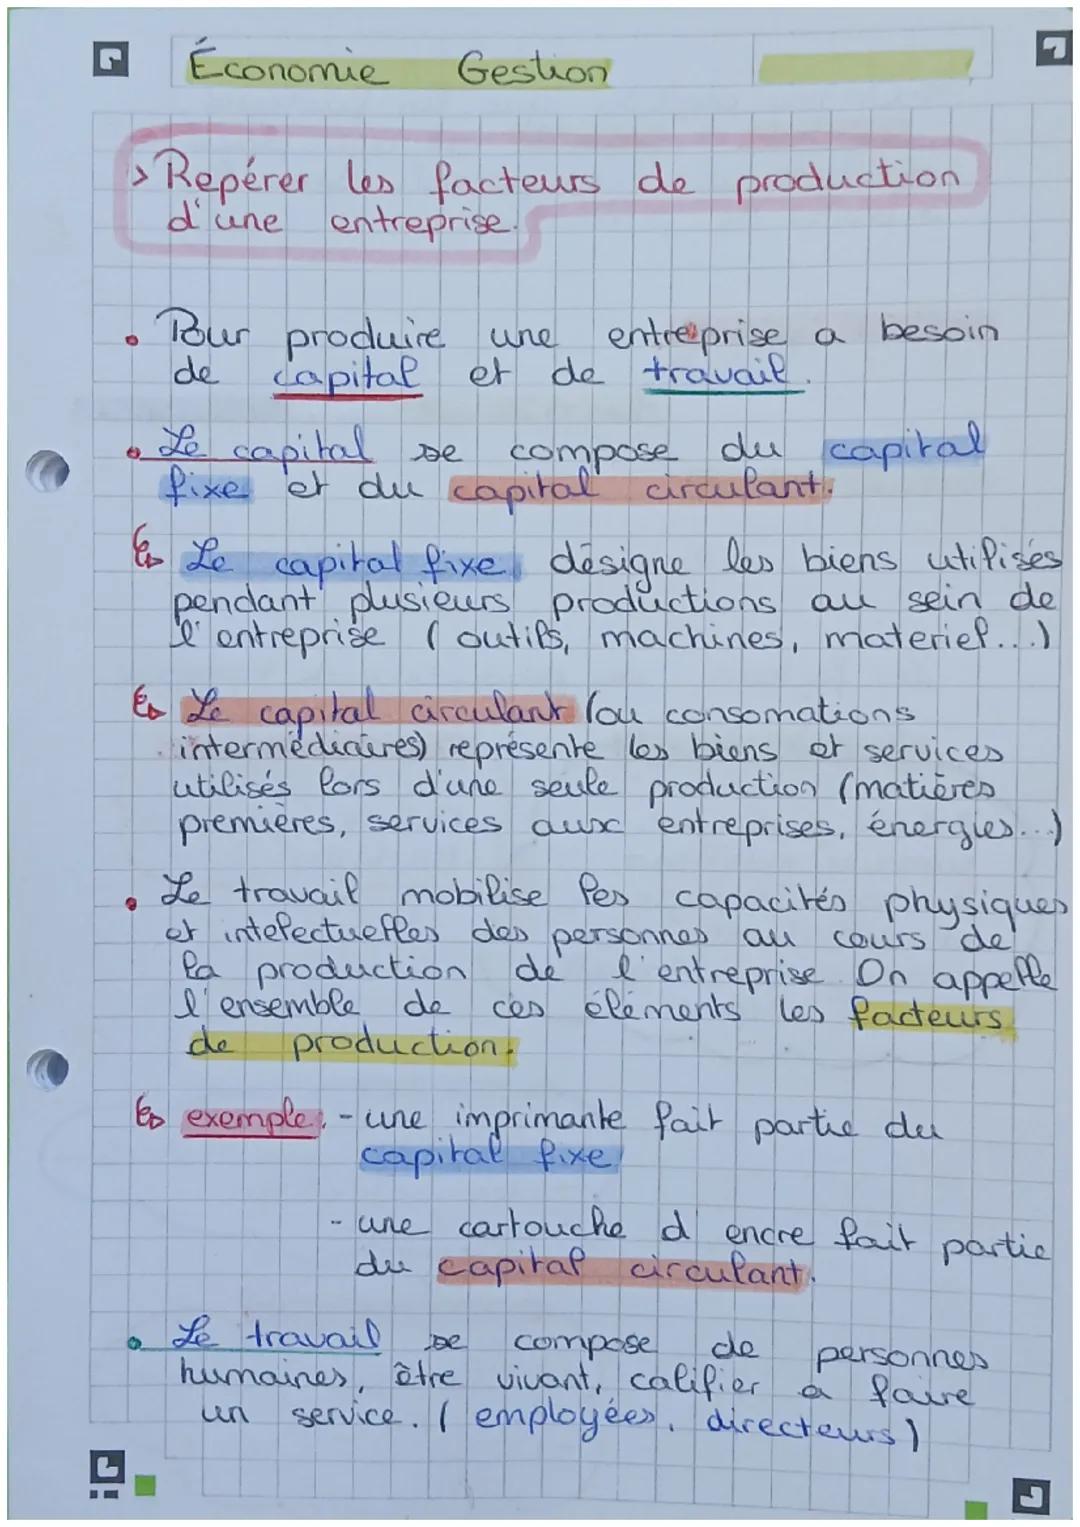 Économie Gestion
> Repérer les facteurs de production
d'une entreprise.
• Pour produire une entreprise a besoin
de capital et de travail.
• Le capital se compose du capital
fixe et du capital circulant.
↳ Le capital fixe désigne les biens utilisés
pendant plusieurs productions au sein de
l'entreprise (outils, machines, materiel...)
↳ Le capital circulant (ou consomations
intermédiaires) représente les biens et services
utilisés lors d'une seule production (matières
premières, services aux entreprises, énergies...)
• Le travail mobilise les capacités physiques
et intelectuelles des personnes au cours de
la production de l'entreprise. On appelle
l'ensemble de ces éléments les facteurs
de production.
↳ exemple : - une imprimante fait partie du
capital fixe
- une cartouche d'encre fait partie
du capital circulant.
• Le travail se compose de personnes
humaines, être vivant, califier a faire
un service. (employées, directeurs)